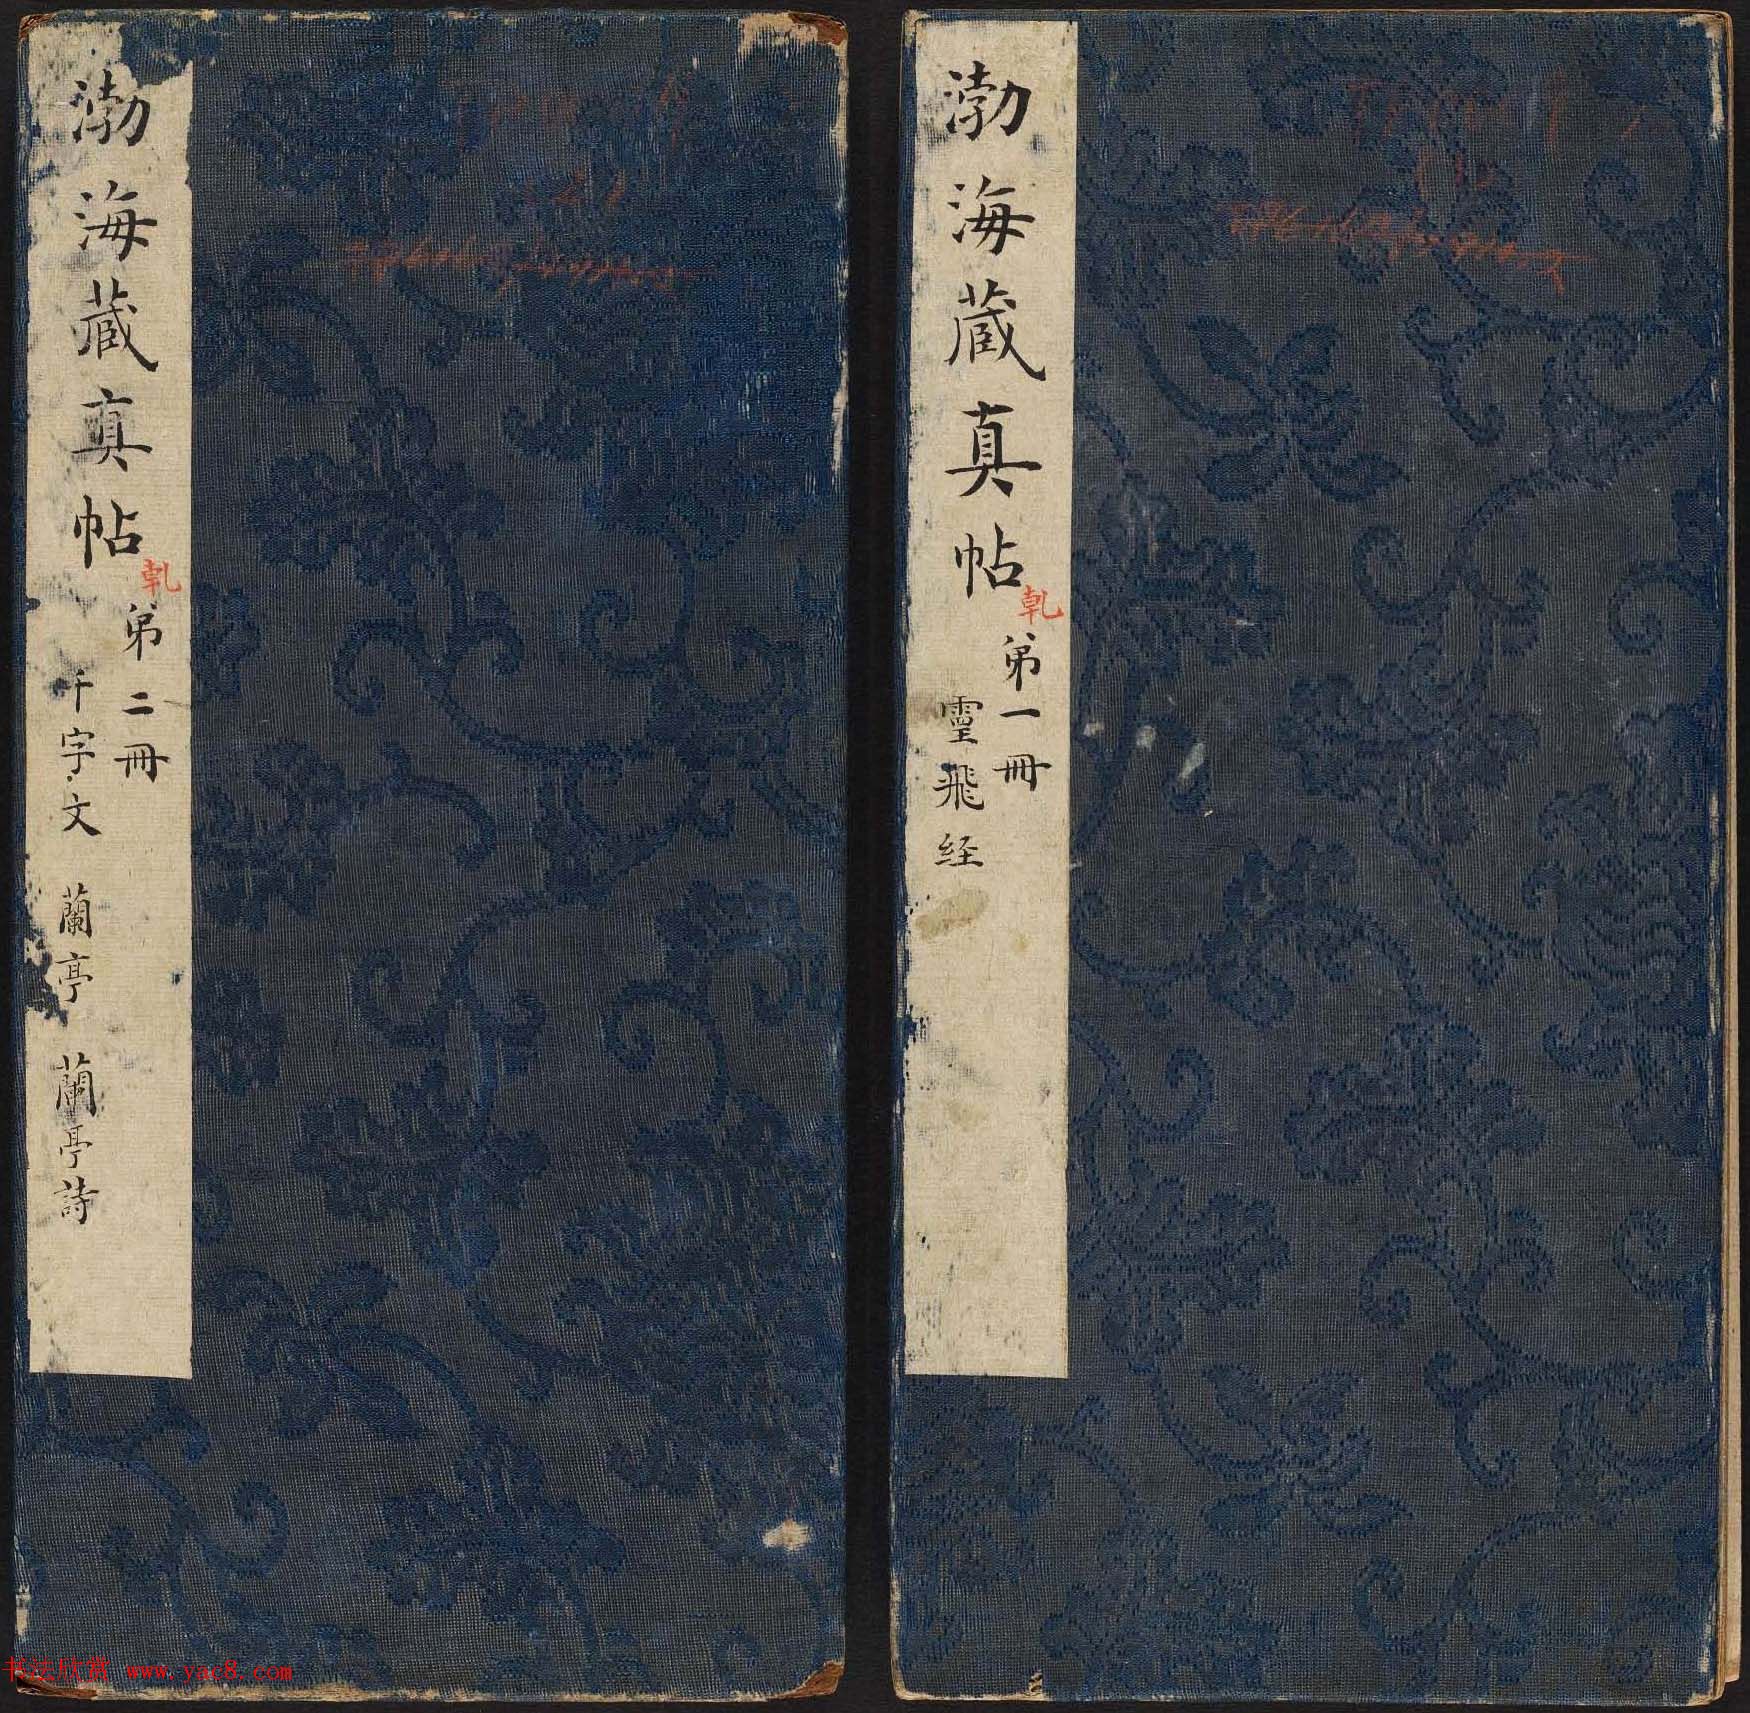 渤海蔵真帖
乾
弟一冊
霊飛経
渤海蔵真帖
乾
弟二冊
千字文 蘭亭 蘭亭詩
书法欣赏 www.yac8.com